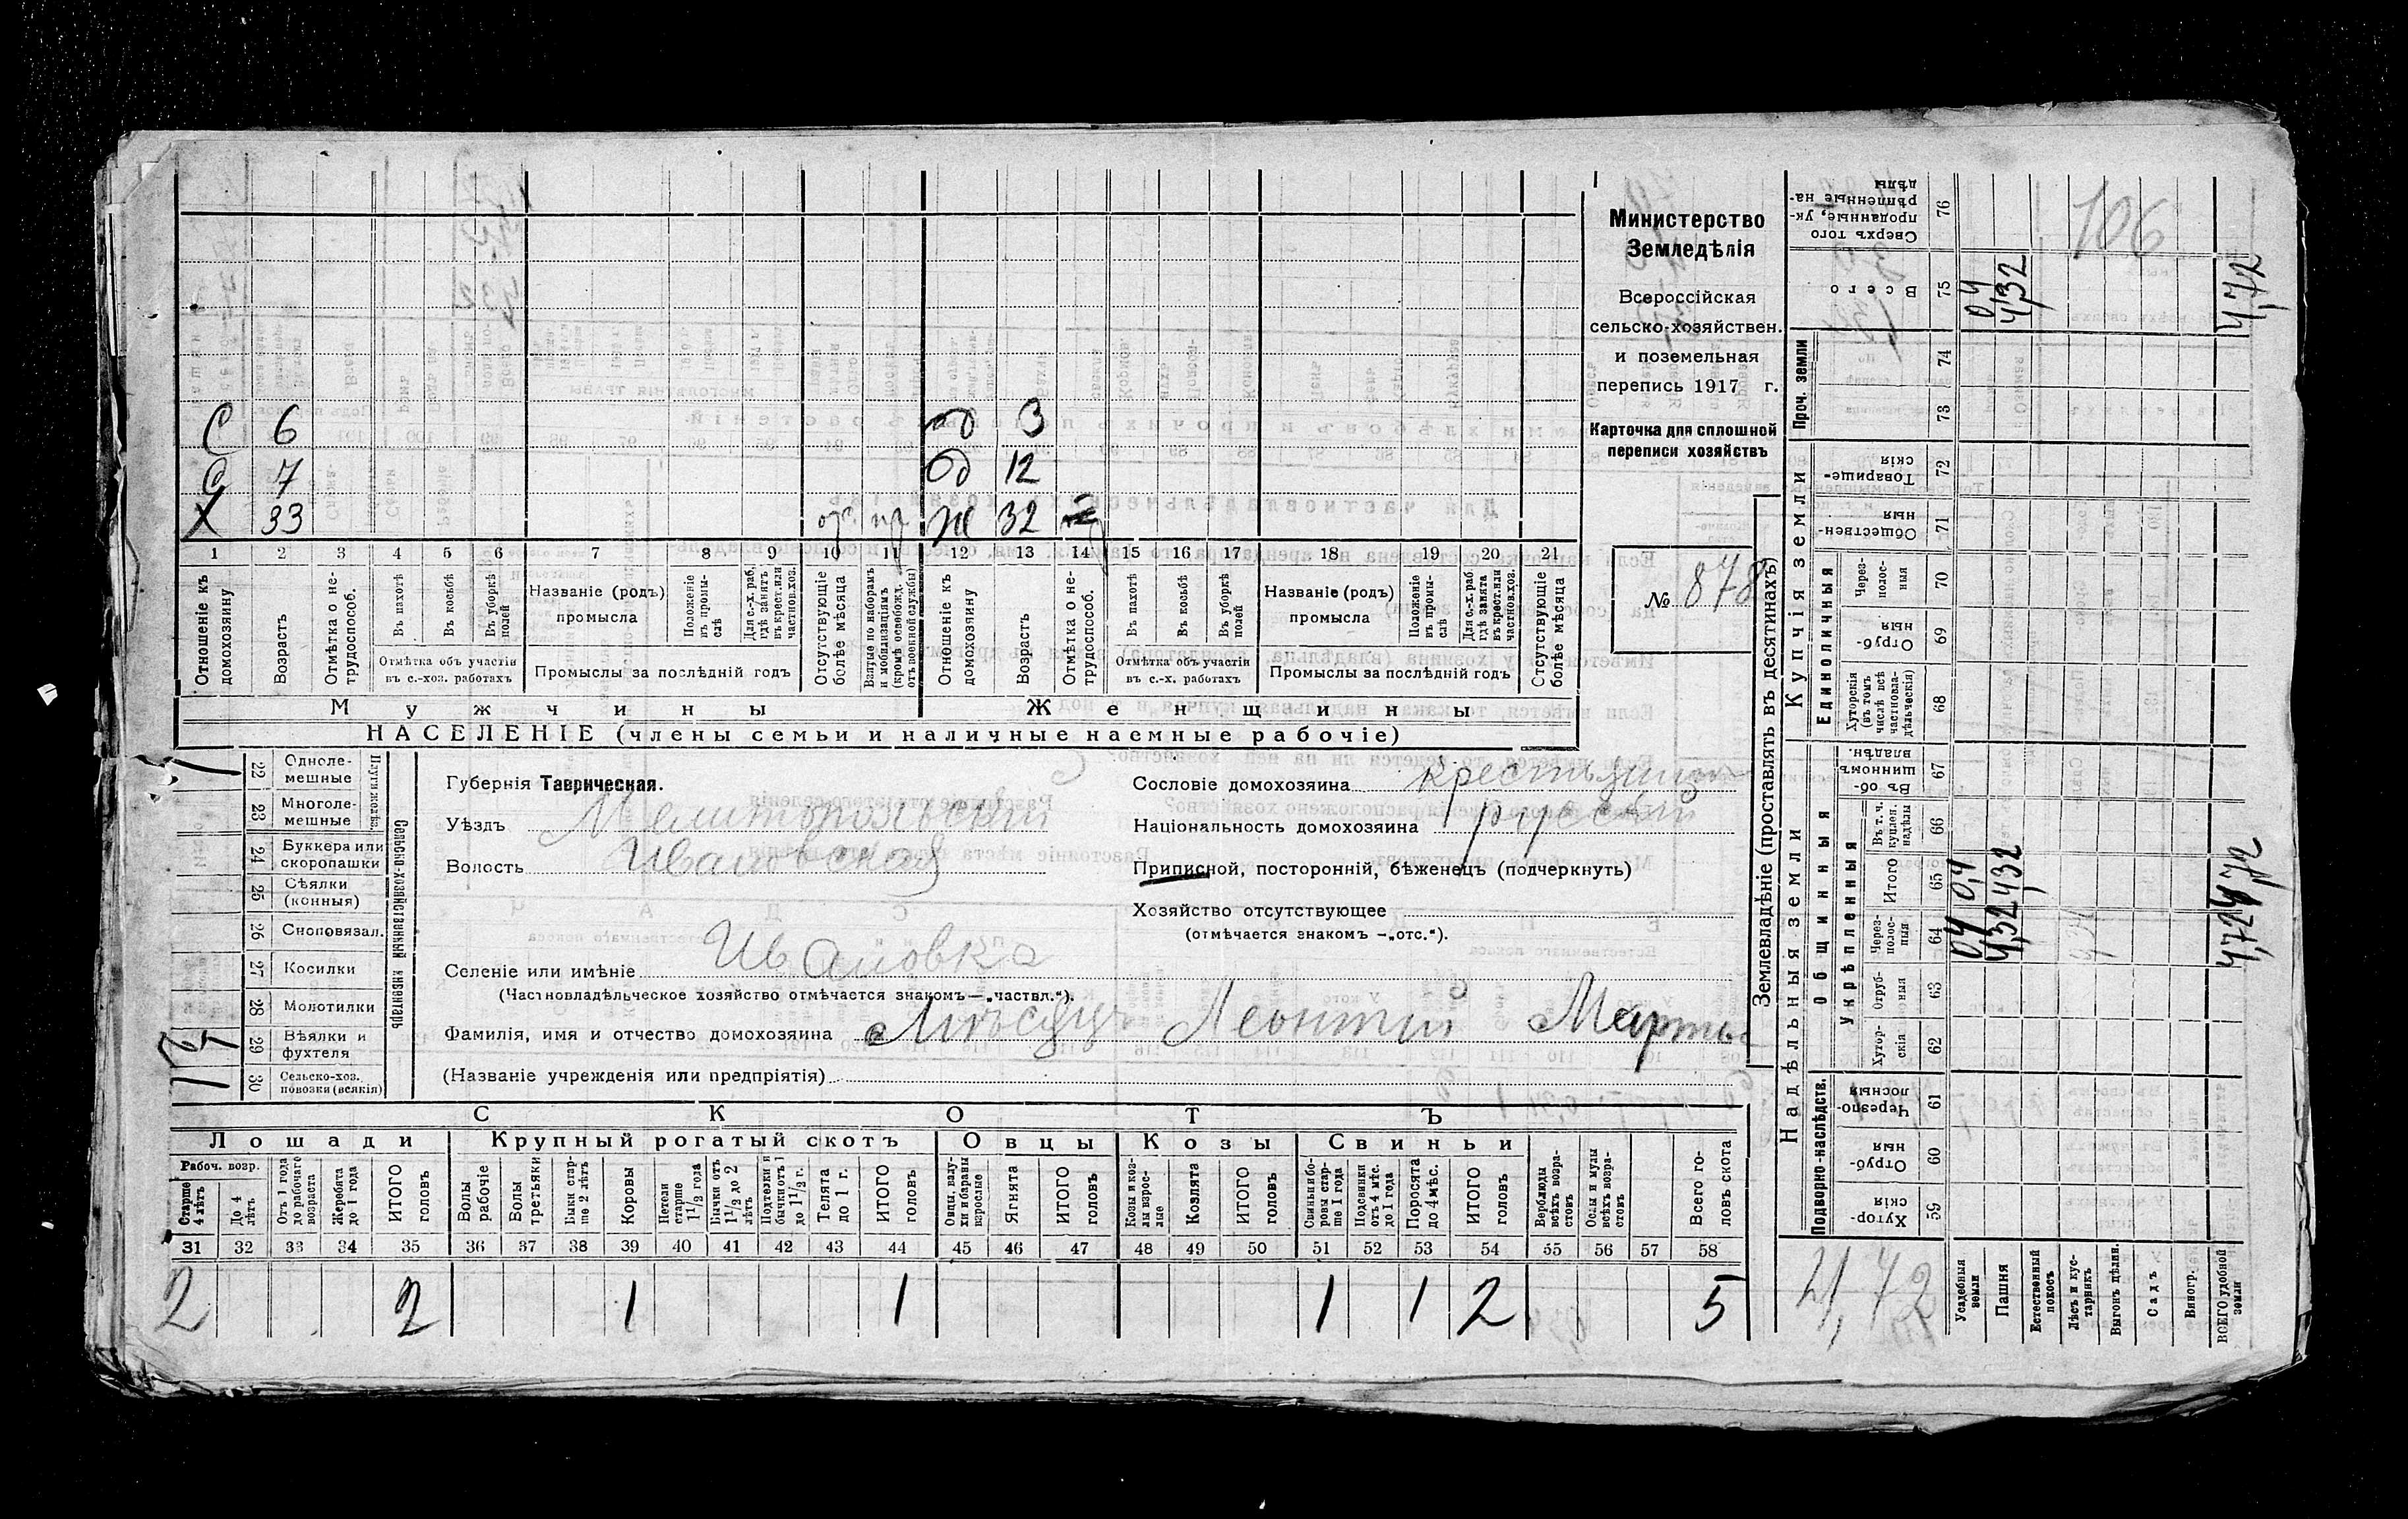 Министерство
Земледѣлія
Всероссійская
сельско-хозяйствен.
и поземельная
перепись 1917 г.
Карточка для сплошной
переписи хозяйствъ
№ 878
С 6 3
С 7 Од 12
Х 33 Ж 32
1 2 3 4 5 6 7 8 9 10 11 12 13 14 15 16 17 18 19 20 21
Отношеніе къ домохозяину
Возрастъ
Отмѣтка о не-трудоспособ.
Въ пахотѣ
Въ косьбѣ
Въ уборкѣ полей
Отмѣтка объ участіи
въ с.-хоз. работахъ
Названіе (родъ)
промысла
Положеніе въ промы-слѣ
Для с.-х. раб, гдѣ занятъ въ крест. или частнов. хоз.
Промыслы за послѣдній годъ
Отсутствующіе болѣе мѣсяца
Взятые по наборамъ и мобилизаціямъ (кромѣ освобожд. отъ военной службы)
Отношеніе къ домохозяину
Возрастъ
Отмѣтка о не-трудоспособ.
Въ пахотѣ
Въ косьбѣ
Въ уборкѣ полей
Отмѣтка объ участіи
въ с.-х. работахъ
Названіе (родъ)
промысла
Положеніе въ промы-слѣ
Для с.-х. раб. гдѣ занята въ крест. или частнов. хоз.
Промыслы за послѣдній годъ
Отсутствующіе болѣе мѣсяца
Мужчины Женщины
НАСЕЛЕНІЕ (члены семьи и наличные наемные рабочіе)
Сельско-хозяйственный инвентарь
22 Одноле-мешные
23 Многоле-мешные
24 Буккера или скоропашки
25 Сѣялки (конныя)
26 Сноповязал.
27 Косилки
28 Молотилки
29 Вѣялки и фухтеля
30 Сельско-хоз. повозки (всякія)
Губернія Таврическая.
Уѣздъ Мелитопольскій
Волость Ивановская
Селеніе или имѣніе Ивановка
(Частновладѣльческое хозяйство отмѣчается знакомъ—„частвл.“).
Фамилія, имя и отчество домохозяина Леонтій
(Названіе учрежденія или предпріятія)
Сословіе домохозяина
Національность домохозяина рускій
Приписной, посторонній, бѣженецъ (подчеркнуть)
Хозяйство отсутствующее
(отмѣчается знакомъ —„отс.“).
СКОТЪ
Лошади Крупный рогатый скотъ Овцы Козы Свиньи
Рабоч. возр.
Старше 4 лѣтъ
До 4 лѣтъ
Отъ 1 года до рабочаго возраста
Жеребята до 1 года
ИТОГО головъ
Волы рабочіе
Волы третьяки
Быки стар-ше 2 лѣтъ
Коровы
Нетели старше 1 1/2 года
Бычки отъ 1 1/2 до 2 лѣтъ
Подтелки и бычки отъ 1 до 1 1/2 г.
Телята до 1 г.
ИТОГО головъ
Овцы, валу-хи и бараны взрослые
Ягнята
ИТОГО головъ
Козы и коз-лы взрос-лые
Козлята
ИТОГО головъ
Свиньи бо-ровы стар-ше 1 года
Подсвинки отъ 4 мѣс. до 1 года
Поросята до 4 мѣс.
ИТОГО головъ
Верблюды всѣхъ возра-стовъ
Ослы и мулы всѣхъ возра-стовъ
Всего го-ловъ скота
31 32 33 34 35 36 37 38 39 40 41 42 43 44 45 46 47 48 49 50 51 52 53 54 55 56 57 58
2 2 1 1 1 1 2 5
Землевладѣніе (проставлять въ десятинахъ)
Надѣльныя земли Купчія земли Проч. земли
Подворно-наслѣдств. Общинныя Единоличныя
Укрѣпленныя
Сверхъ того проданные, ук-рѣпленные на-дѣлы 76
Всего 75 0,4 4,32 4,72
74
73
Товарище-скія 72
Обществен-ныя 71
Через-полос-ныя 70
Отруб-ныя 69
Хуторскія (въ томъ числѣ всѣ частновла-дѣльческія) 68
Въ об-шинномъ владѣн. 67
Въ т. ч. куплен. надѣлы 66
Итого 65 0,4 4,32 4,72
Через-полос-ныя 64 0,4 4,32 4,72
Отруб-ныя 63
Хутор-скія 62
Черезпо-лосныя 61
Отруб-ныя 60
Хутор-скія 59
Усадебныя земли
Пашня
Естественный покосъ
Лѣсъ и кус-тарникъ
Выгонъ дѣлин.
Садъ
Виногр.
ВСЕГО удобной земли
106
4,72